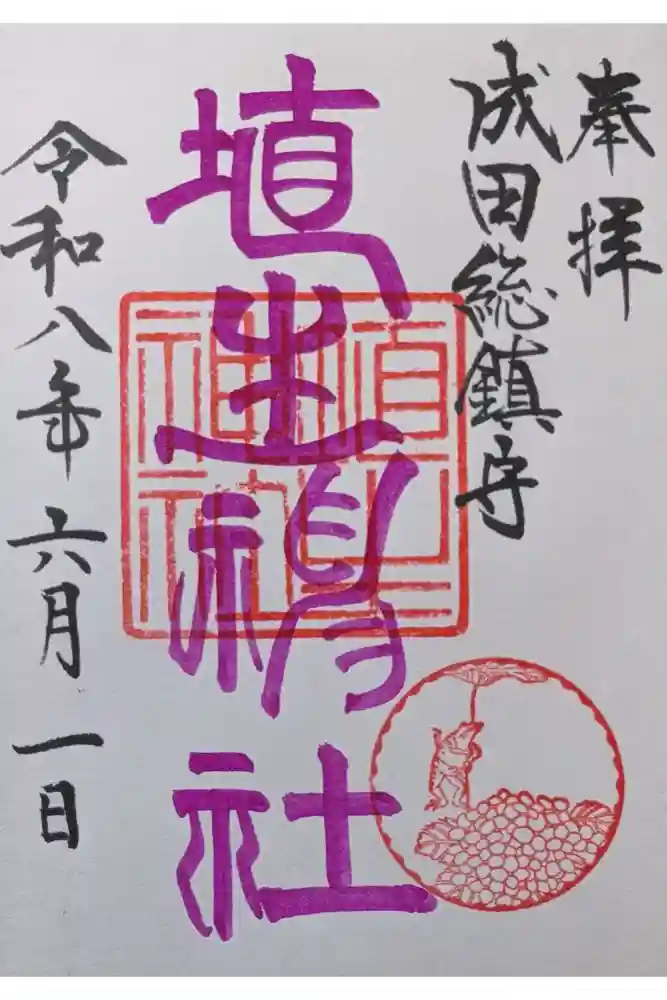 奉拝
成田総鎮守
埴生神社
令和八年六月一日